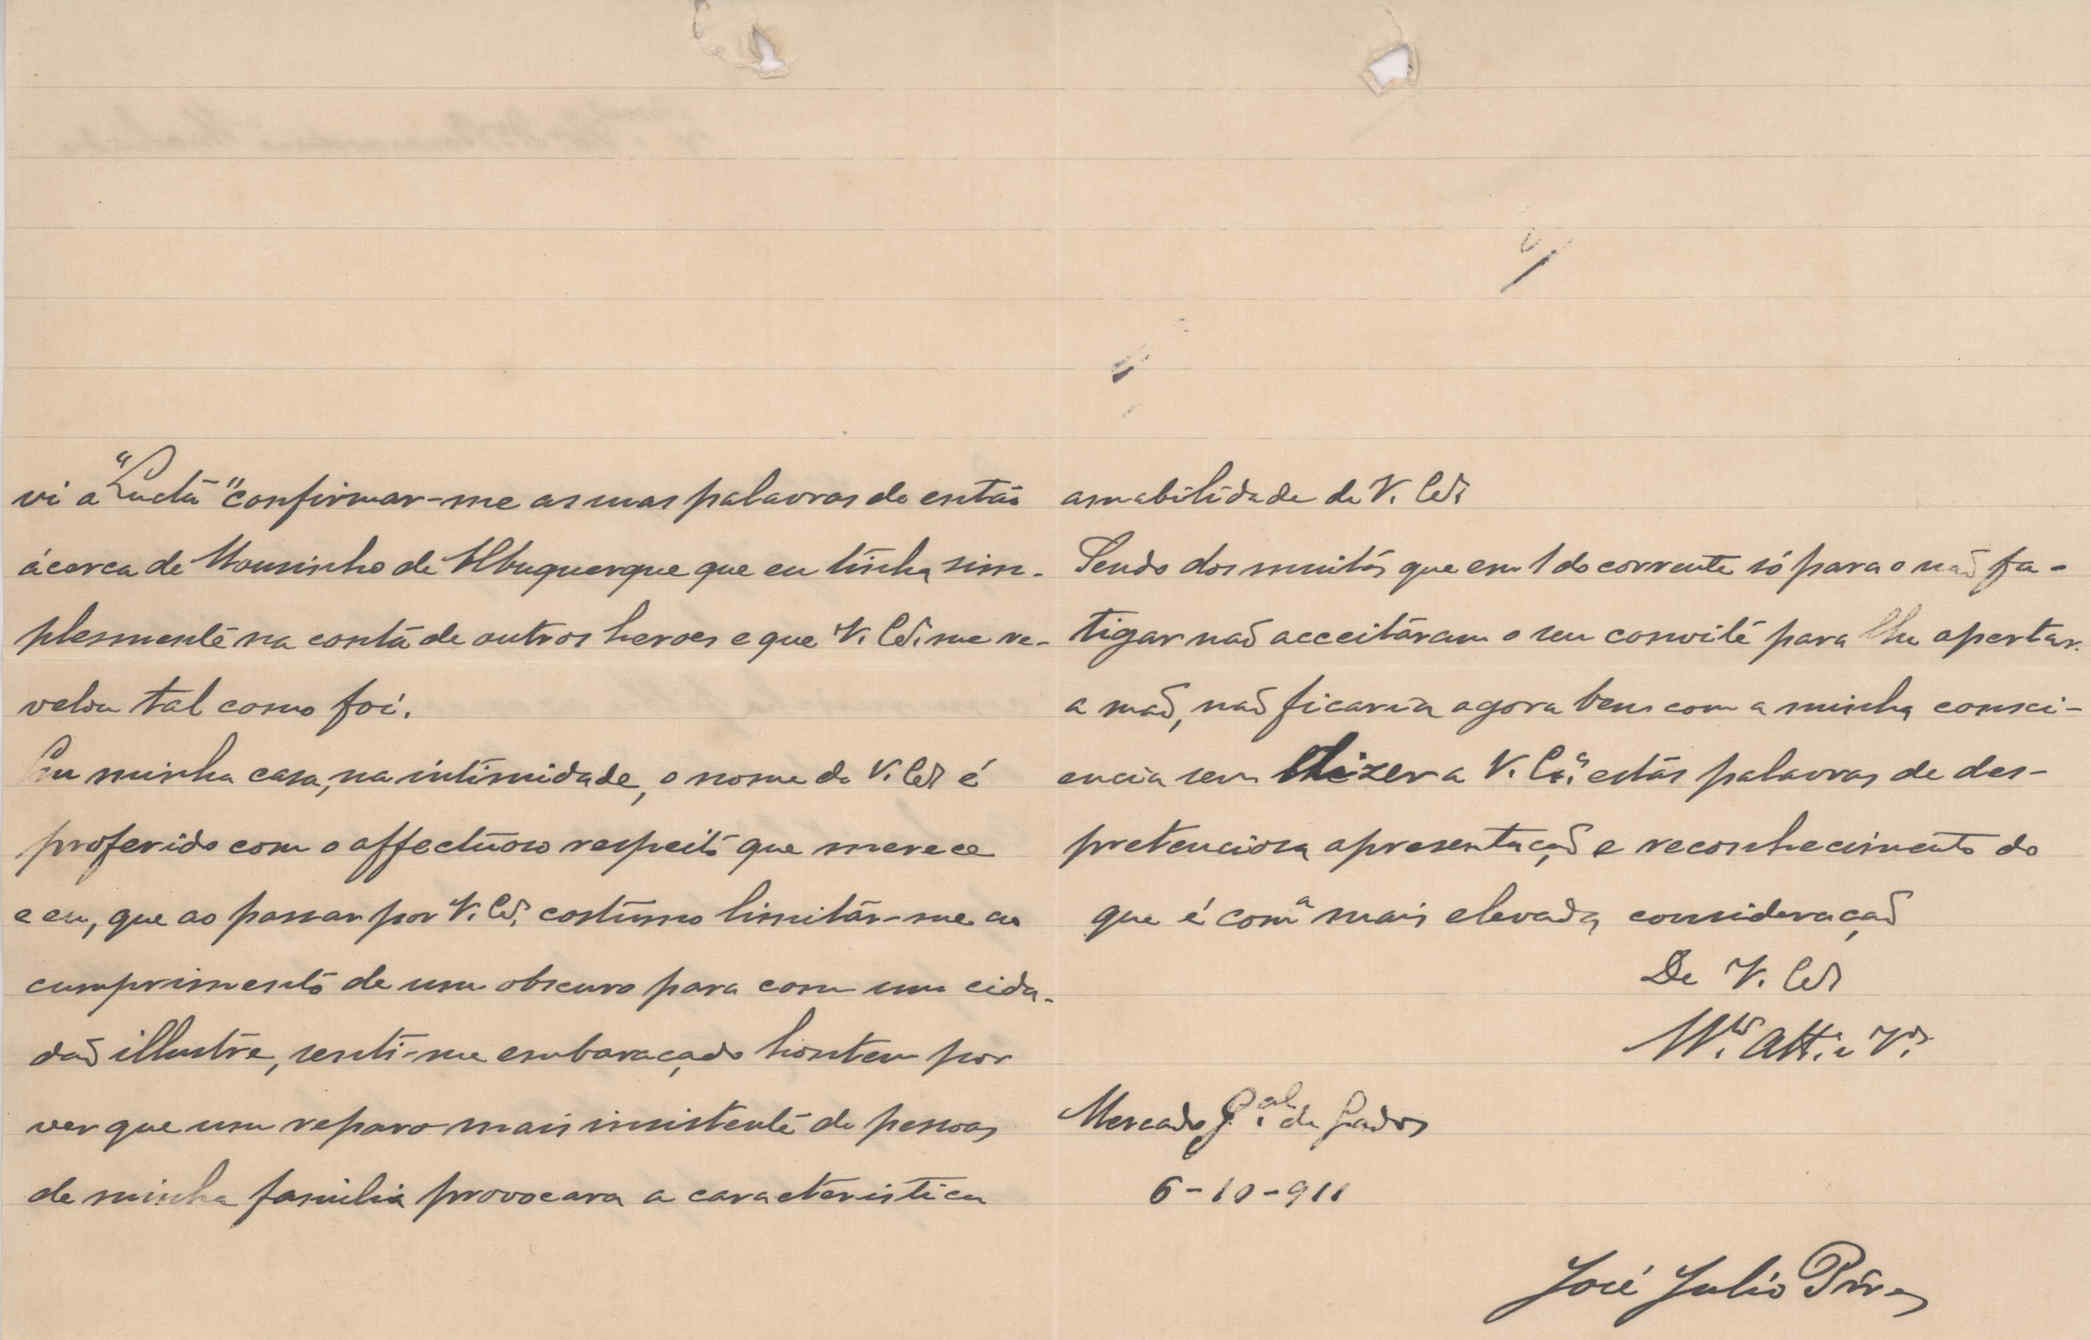 vi a "Lucta" confirmar-me as suas palavras de então
ácerca de Mousinho de Albuquerque que eu tinha sim-
plesmente na conta de outros heroes e que V. Ex.ª me re-
velou tal como foi.
Em minha casa, na intimidade, o nome de V. Ex.ª é
proferido com o affectuoso respeito que merece
e eu, que ao passar por V. Ex.ª costumo limitar-me ao
cumprimento de um obscuro para com um cida-
dão illustre, senti-me embaraçado hontem por
ver que um reparo mais insistente de pessoas
de minha familia provocara a caracteristica
amabilidade de V. Ex.ª
Sendo dos muitos que em 1 do corrente só para o não fa-
tigar não acceitáram o seu convite para lhe apertar
a mão, não ficaria agora bem com a minha consci-
encia sem dizer a V. Ex.ª estas palavras de des-
pretenciosa apresentação e reconhecimento do
que é com a mais elevada consideração
De V. Ex.ª
M.to Att.º e V.or
Mercado G.al de Gados
6-10-911
José Julio Pires